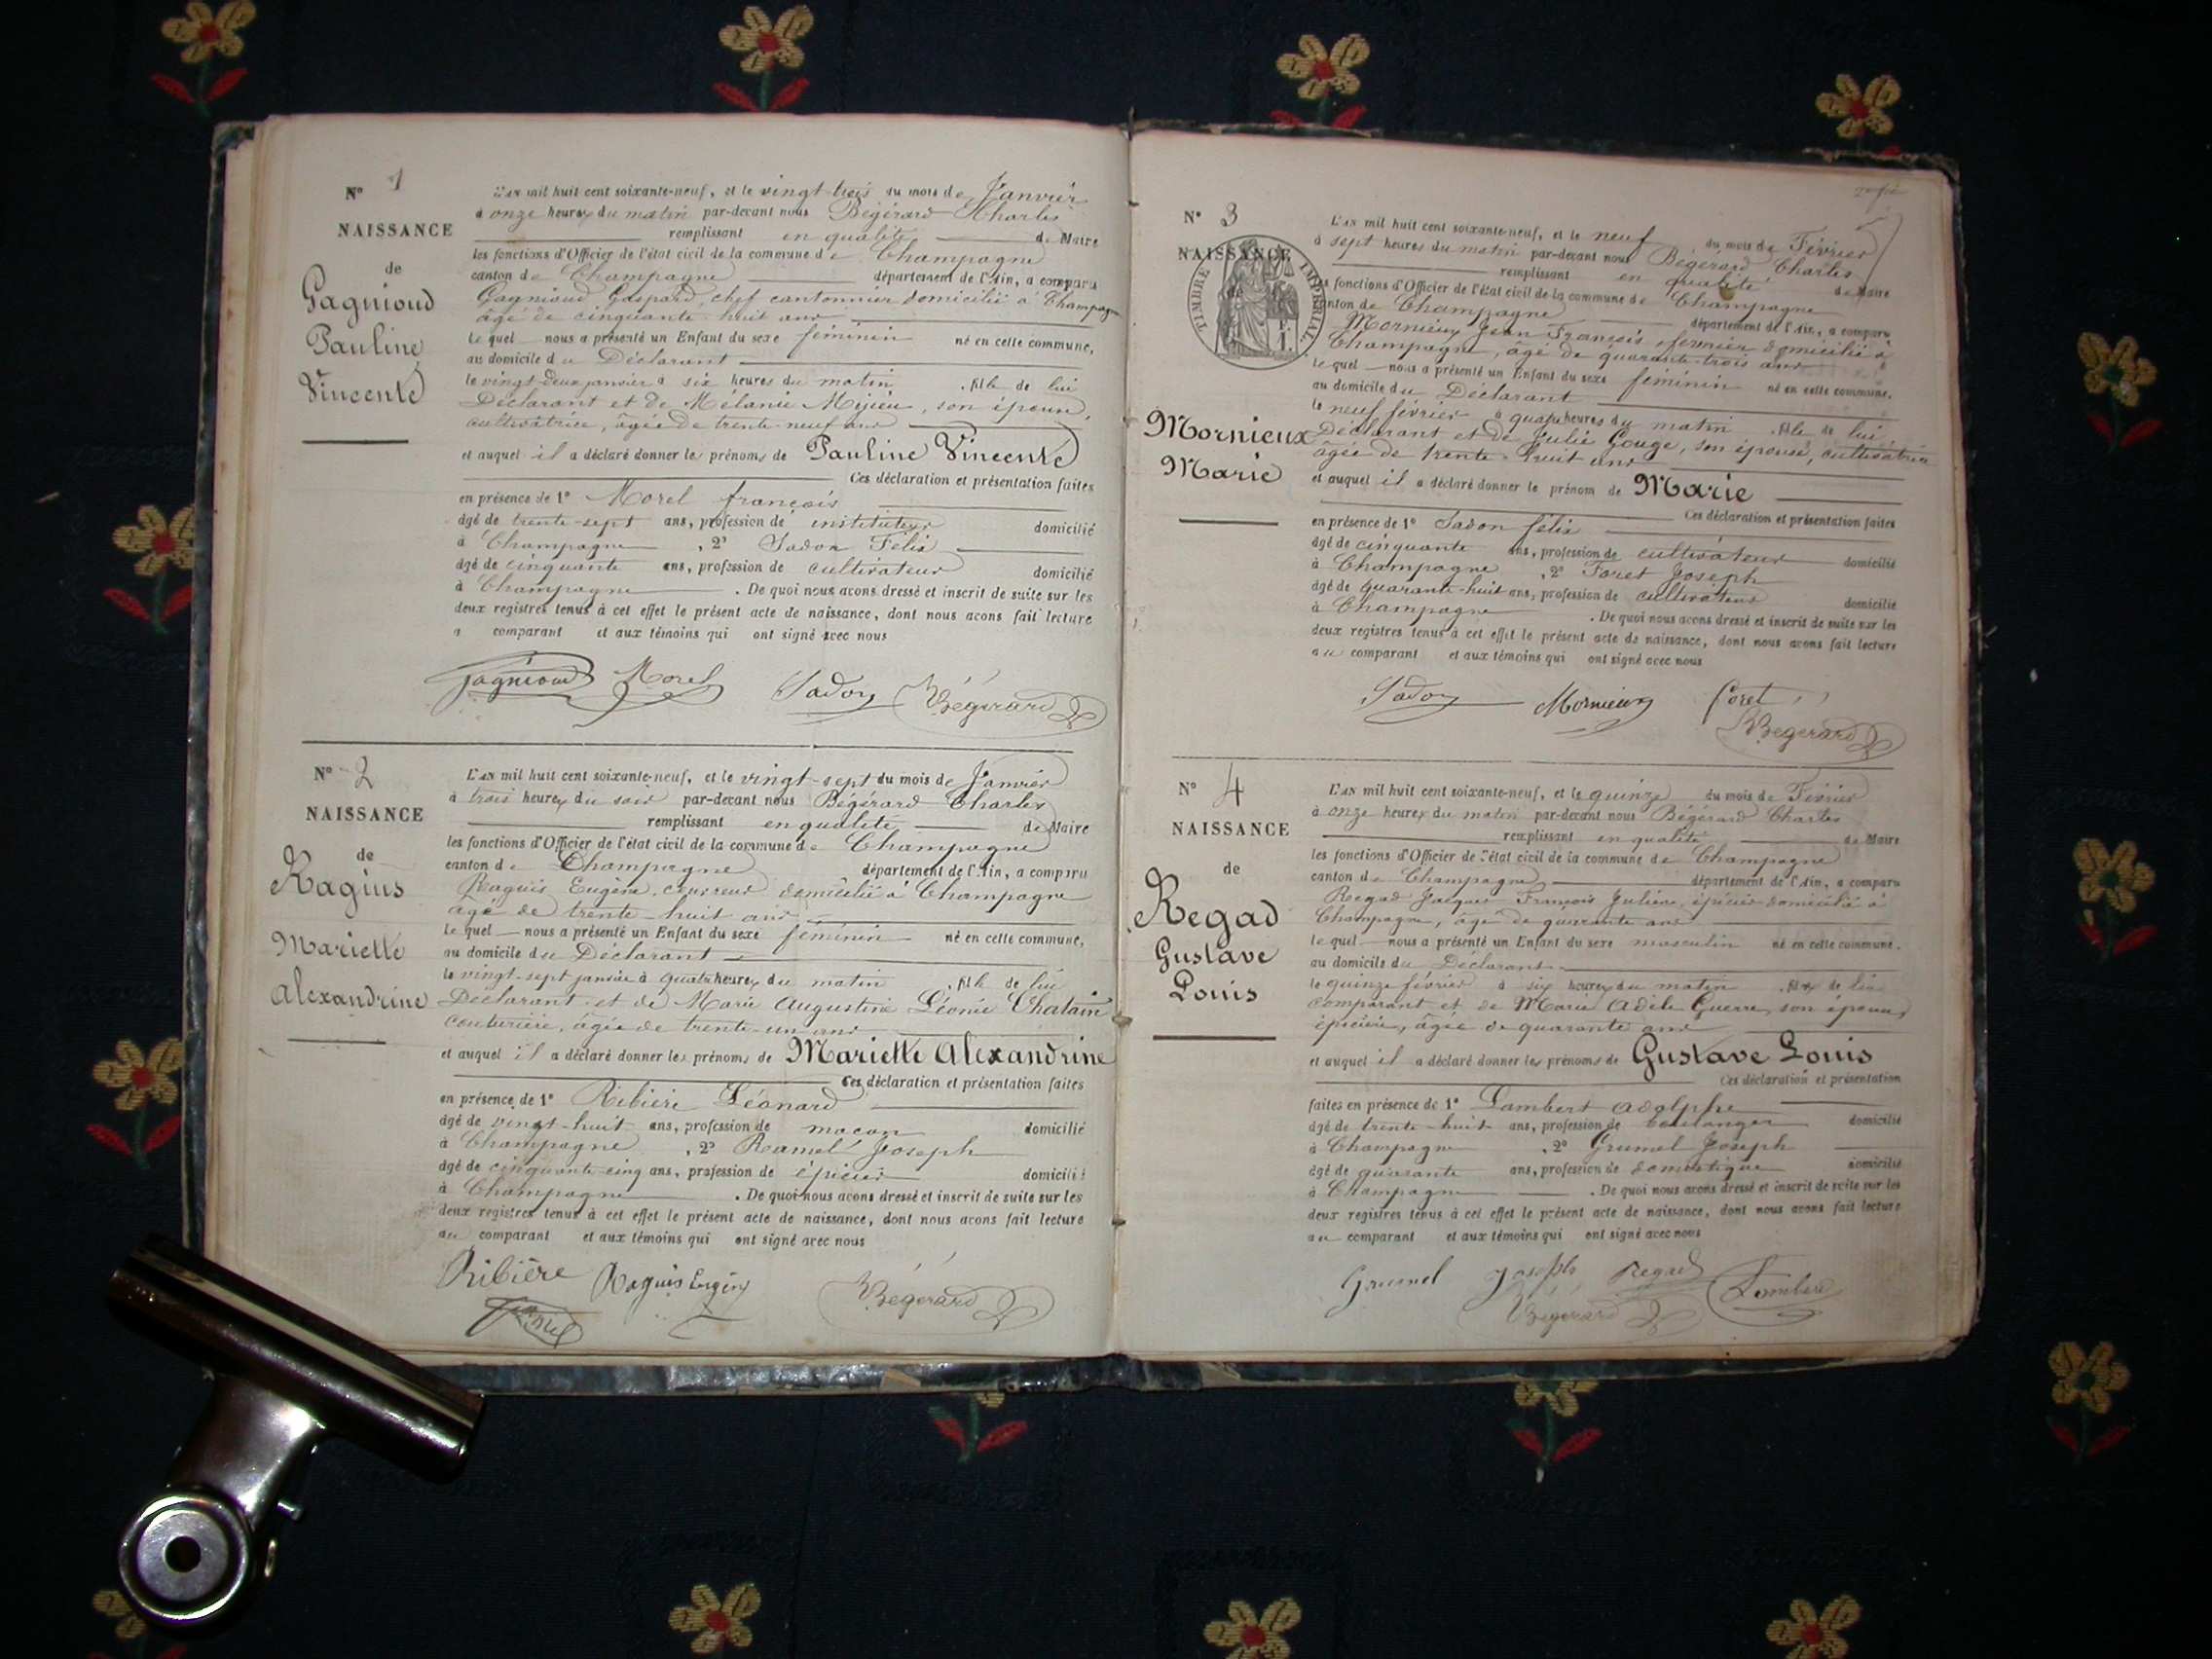 N° 1
NAISSANCE
de
Gagnioud
Pauline
Vincente
L'AN mil huit cent soixante-neuf, et le vingt-trois du mois de Janvier
à onze heures du matin par-devant nous Bégérard Charles
remplissant en qualité de Maire
les fonctions d'Officier de l'état civil de la commune de Champagne
canton de Champagne département de l'Ain, a comparu
Gagnioud Gaspard, chef cantonnier domicilié à Champagne
âgé de cinquante-huit ans
le quel nous a présenté un Enfant du sexe féminin né en cette commune,
au domicile du Déclarant
le vingt-deux janvier à six heures du matin , fille de lui
Déclarant et de Mélanie Mijieu, son épouse,
cultivatrice, âgée de trente-neuf ans
et auquel il a déclaré donner les prénoms de Pauline Vincente
Ces déclaration et présentation faites
en présence de 1° Morel françois
âgé de trente-sept ans, profession de instituteur domicilié
à Champagne , 2° Sadon Félix
âgé de cinquante ans, profession de cultivateur domicilié
à Champagne . De quoi nous avons dressé et inscrit de suite sur les
deux registres tenus à cet effet le présent acte de naissance, dont nous avons fait lecture
a comparant et aux témoins qui ont signé avec nous
Gagnioud Morel Sadon Bégérard
N° 2
NAISSANCE
de
Ragius
Mariette
Alexandrine
L'AN mil huit cent soixante-neuf, et le vingt-sept du mois de Janvier
à trois heures du soir par-devant nous Bégérard Charles
remplissant en qualité de Maire
les fonctions d'Officier de l'état civil de la commune de Champagne
canton de Champagne département de l'Ain, a comparu
Raguis Eugène, couvreur domicilié à Champagne
âgé de trente-huit ans
le quel nous a présenté un Enfant du sexe féminin né en cette commune,
au domicile du Déclarant
le vingt-sept janvier à quatre heures du matin , fille de lui
Déclarant et de Marie Augustine Léonie Chatain
couturière, âgée de trente-un ans
et auquel il a déclaré donner les prénoms de Mariette Alexandrine
Ces déclaration et présentation faites
en présence de 1° Ribière Léonard
âgé de vingt-huit ans, profession de maçon domicilié
à Champagne , 2° Ramel Joseph
âgé de cinquante-cinq ans, profession de épicier domicilié
à Champagne . De quoi nous avons dressé et inscrit de suite sur les
deux registres tenus à cet effet le présent acte de naissance, dont nous avons fait lecture
au comparant et aux témoins qui ont signé avec nous
Ribière Raguis Eugène
Bégérard
N° 3
NAISSANCE
de
TIMBRE IMPERIAL
Mornieux
Marie
L'AN mil huit cent soixante-neuf, et le neuf du mois de Février
à sept heures du matin par-devant nous Bégérard Charles
remplissant en qualité de Maire
les fonctions d'Officier de l'état civil de la commune de Champagne
canton de Champagne département de l'Ain, a comparu
Mornieux Jean François, fermier domicilié à
Champagne, âgé de quarante-trois ans
le quel nous a présenté un Enfant du sexe féminin né en cette commune,
au domicile du Déclarant
le neuf février à quatre heures du matin , fille de lui
Déclarant et de Julie Gouge, son épouse, cultivatrice
âgée de trente-huit ans
et auquel il a déclaré donner le prénom de Marie
Ces déclaration et présentation faites
en présence de 1° Sadon félix
âgé de cinquante ans, profession de cultivateur domicilié
à Champagne , 2° Foret Joseph
âgé de quarante-huit ans, profession de cultivateur domicilié
à Champagne . De quoi nous avons dressé et inscrit de suite sur les
deux registres tenus à cet effet le présent acte de naissance, dont nous avons fait lecture
au comparant et aux témoins qui ont signé avec nous
Sadon Mornieux foret
Bégérard
N° 4
NAISSANCE
de
Regad
Gustave
Louis
L'AN mil huit cent soixante-neuf, et le quinze du mois de Février
à onze heures du matin par-devant nous Bégérard Charles
remplissant en qualité de Maire
les fonctions d'Officier de l'état civil de la commune de Champagne
canton de Champagne département de l'Ain, a comparu
Regad Jacques François Julien, épicier domicilié à
Champagne, âgé de quarante ans
le quel nous a présenté un Enfant du sexe masculin né en cette commune.
au domicile du Déclarant
le quinze février à six heures du matin , fils de lui
comparant et de Marie Adèle Guerre, son épouse,
épicière, âgée de quarante ans
et auquel il a déclaré donner les prénoms de Gustave Louis
Ces déclaration et présentation
faites en présence de 1° Lambert Adolphe
âgé de trente-huit ans, profession de boulanger domicilié
à Champagne , 2° Grumel Joseph
âgé de quarante ans, profession de domestique domicilié
à Champagne . De quoi nous avons dressé et inscrit de suite sur les
deux registres tenus à cet effet le présent acte de naissance, dont nous avons fait lecture
au comparant et aux témoins qui ont signé avec nous
Grumel Joseph Regad Lambert
Bégérard